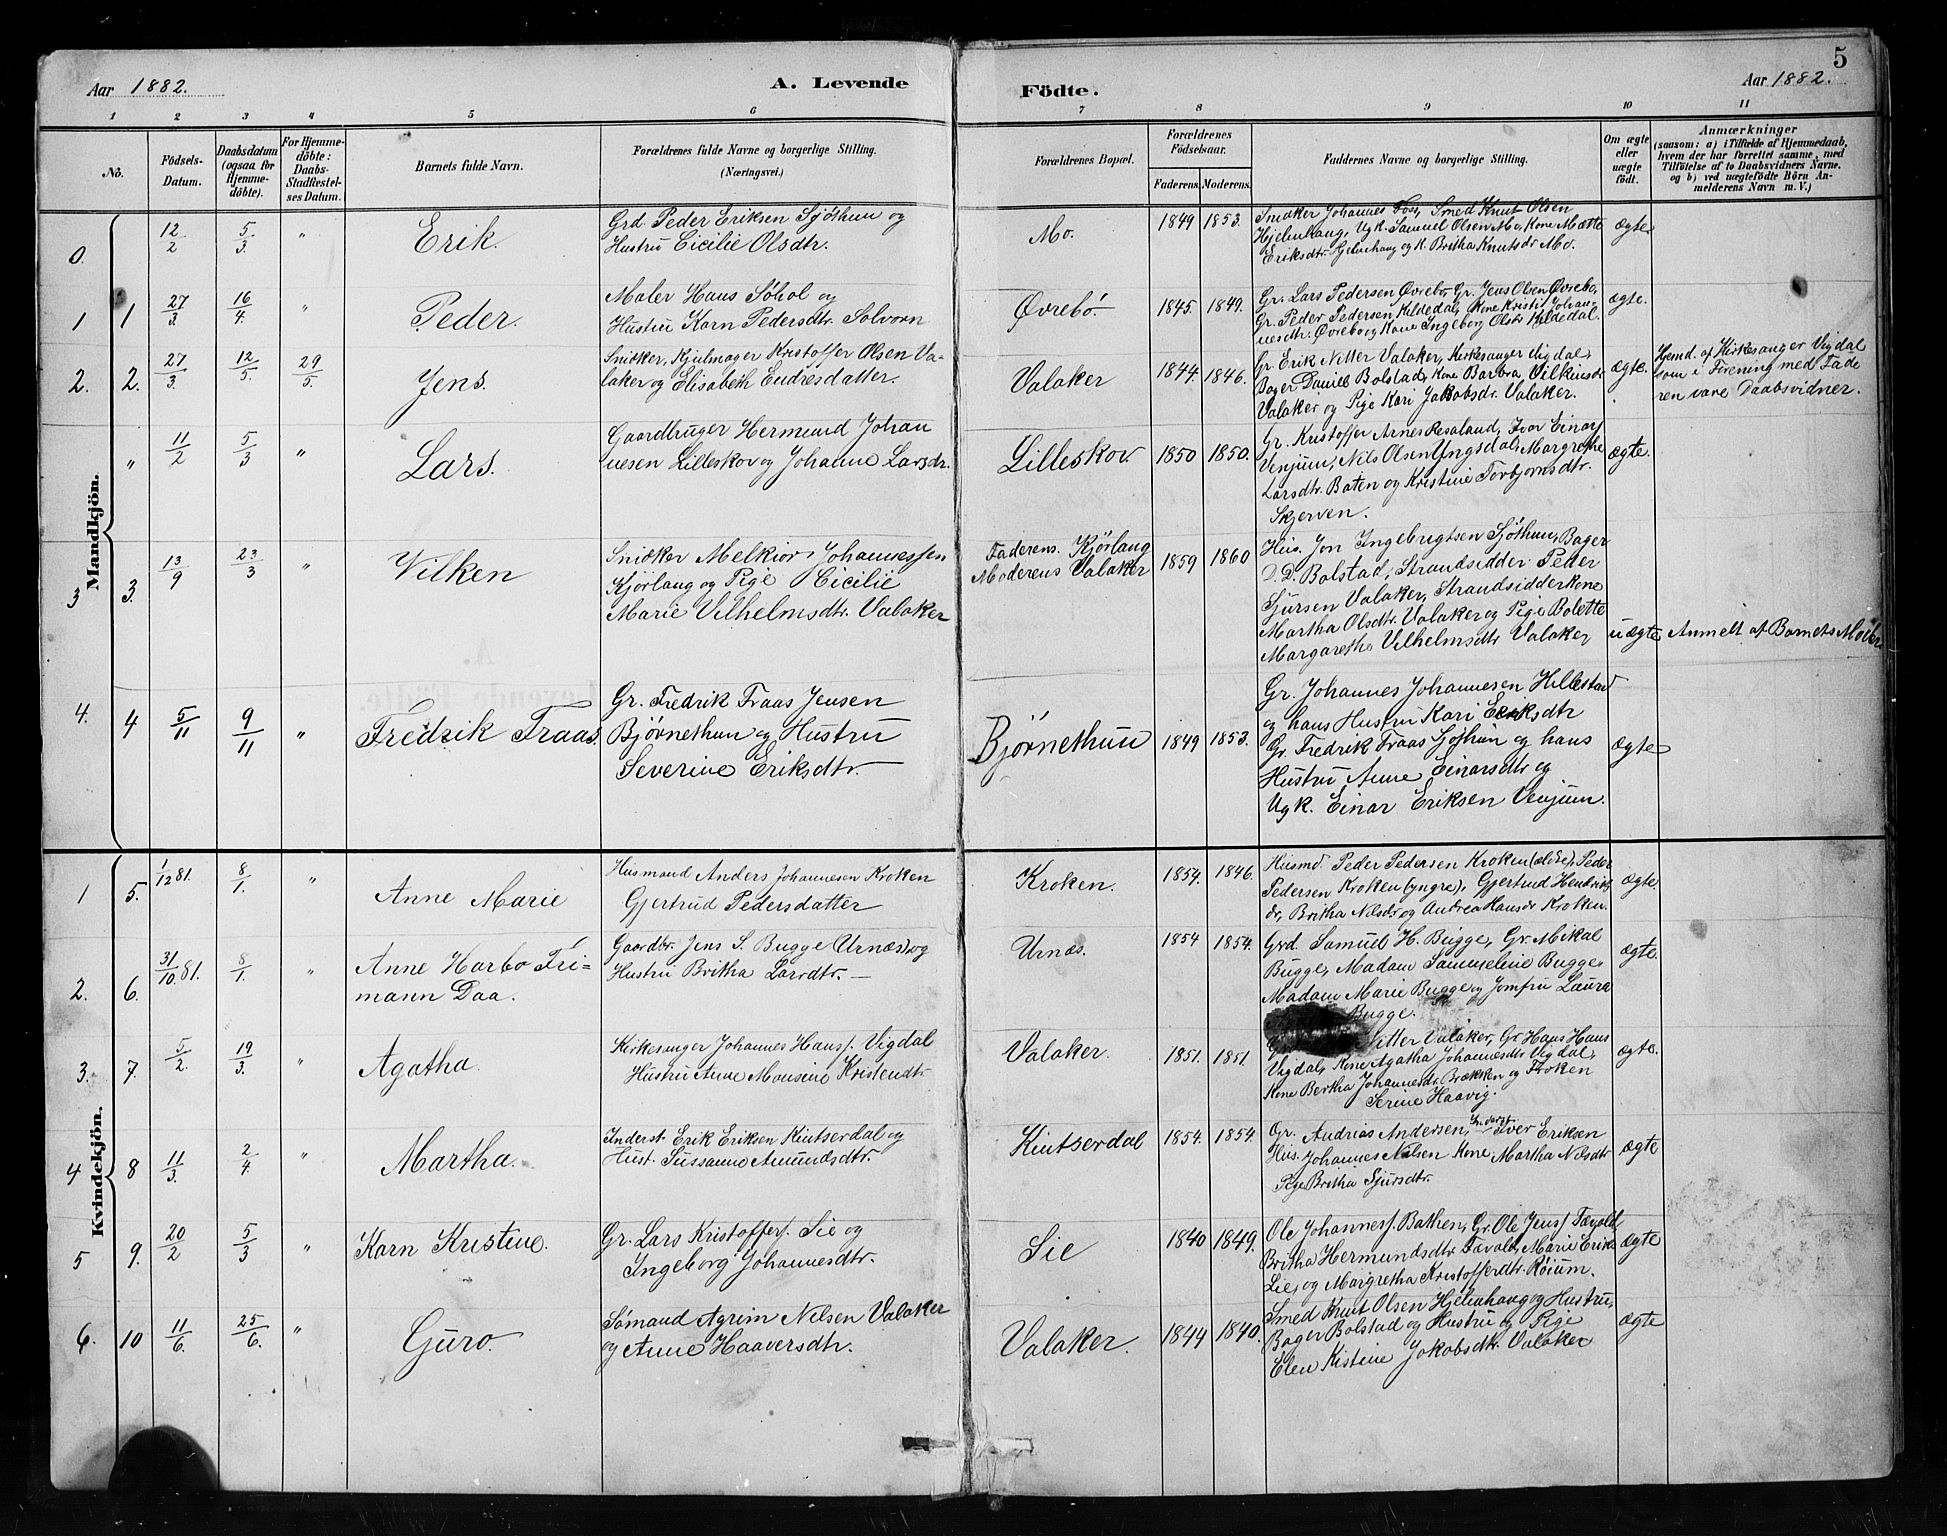 5
Aar 1882.
A. Levende
Födte.
Aar 1882.
1 2 3 4 5 6 7 8 9 10 11
No.
Födsels-
Datum.
Daabsdatum
(ogsaa for
Hjemme-
döbte).
For Hjemme-
döbte:
Daabs-
Stadfestel-
ses Datum.
Barnets fulde Navn.
Forældrenes fulde Navne og borgerlige Stilling.
(Næringsvei.)
Forældrenes Bopæl.
Forældrenes
Födselsaar.
Faderens. Moderens.
Faddernes Navne og borgerlige Stilling.
Om ægte
eller
uægte
födt.
Anmærkninger
(saasom: a) i Tilfælde af Hjemmedaab,
hvem der har forrettet samme, med
Tilföielse af to Daabsvidners Navne.
og b) ved uægtefödte Börn An-
melderens Navn m. V.)
Mandkjön.
0. 12/2 5/3. " Erik.
Grd. Peder Eriksen Sjøthun og
Hustru Cicilie Olsdtr.
Mo. 1849 1853.
Snidker Johannes Foss, Smed Knut Olsen
Hjelmhaug, Ugk. Samuel Olsen Mo, Kone Mætte
Eriksdtr. Gjelmhaug og K. Britha Knutsdr Mo.
ægte
1 1 27/3. 16/4. " Peder.
Maler Hans Søhol og
Hustru Karn Pedersdtr. Solvorn
Øvrebö. 1845. 1849.
Gr. Lars Pedersen Øvrebø, Gr. Jens Olsen Øvrebø,
Gr. Peder Pedersen Kildedal, Kone Kristi Johan-
nesdtr. Øvrebø og Kone Ingeborg Olsdr Kildedal.
ægte.
2. 2. 27/3. 12/5. 29/5. Jens.
Snidker, Hjulmager Kristoffer Olsen Va-
laker og Elisabeth Endresdatter.
Valaker 1844. 1846.
Gr. Erik Nitter Valaker, Kirkesanger Vigdal,
Bager Daniel Bolstad, Kone Barbra Vilkensdr
Valaker og Pige Kari Jakobsdr. Valaker.
ægte.
Hjemd. af Kirkesanger Vigdal
som i Forening med Fade
ren vare Daabsvidner.
" 11/2 5/3 " Lars.
Gaardbruger Hermund Johan
nesen Lilleskov og Johanne Larsdr.
Lilleskov. 1850 1850.
Gr. Kristoffer Arnes Resaland, Iver Einarf
Venjum, Nils Olsen Ungsdal, Margrethe
Larsdtr. Baten og Kristine Torbjornsdtr.
Skjerven.
ægte.
3 3. 13/9 23/3 " Vilken
Snidker Melkior Johannessen
Kjørlaug og Pige Cicilie
Marie Vilhelmsdtr. Valaker
Faderens. Kjørlaug
Moderens Valaker 1859 1860
Hus. Jon Ingebrigtsen Sjøthun, Bager
D. D. Bolstad, Strandsidder Peder
Sjursen Valaker, Strandsidderkone
Martha Olsdtr. Valaker og Pige Bolette
Margaretha Vilhelmsdtr Valaker
uægte Anmelt af Barnets Moder.
4. 4 5/11 9/11 " Fredrik Fraas.
Gr. Fredrik Fraas Jensen
Bjørnethun og Hustru
Severine Eriksdtr.
Bjørnethun 1849 1853.
Gr. Johannes Johannesen Hillestad
og hans Hustru Kari Eriksdtr
Gr. Fredrik Fraas Sjøthun og hans
Hustru Anne Einarsdtr og
Ugk. Einar Eriksen Venjum.
ægte
Kvindekjön.
1 5. 1/12 81. 8/1. " Anne Marie
Husmand Anders Johannesen Kroken
Gjertrud Pedersdatter
Kroken. 1854. 1846.
Husmd. Peder Pedersen Kroken (ældre), Peder
Pedersen Kroken (yngre), Gjertrud Hendriks
dr, Britha Nilsdr og Andrea Hansdr Kroken.
ægte
2. 6. 31/10 81. 8/1. " Anne Harbo Fri-
mann Daa.
Gaardbr. Jens S. Bugge (Urnæs) og
Hustru Britha Larsdtr.
Urnæs. 1854 1854.
Grd. Samuel H. Bugge, Gr. Mikal
Bugge, Madam Sammeline Bugge
Madam Marie Bugge og Jomfru Laura
Bugge.
ægte.
3. 7. 5/2. 19/3. " Agatha.
Kirkesanger Johannes Hansf. Vigdal
Hustru Anne Monsine Kristendtr
Valaker. 1851. 1851.
Nitter Valaker, Gr Hans Hans
Vigdal, Kone Agatha Johannesdtr Vigdal,
Kone Bertha Johannesdr. Brækken og Frøken
Serine Haavig.
ægte.
4 8 11/3. 2/4. " Martha.
Inderst. Erik Eriksen Kintserdal og
Hust. Sussanne Amundsdtr.
Kintserdal 1854. 1854.
Gr. Andrias Andersen, Inderst Iver Eriksen
Hus. Johannes Nilsen Kone Martha Nilsdtr
Pige Britha Sjursdtr.
ægte
5 9. 20/2 5/3 " Karn Kristine.
Gr. Lars Kristoffersf. Lie og
Ingeborg Johannesdtr.
Lie 1840 1849.
Ole Johannesf Bathen, Gr. Ole Jensf Fævold
Britha Hermundsdtr Fævold, Marie Eriks
Lie, og Margretha Kristofferdtr. Röium.
ægte
6. 10 11/6. 25/6. " Guro.
Sømand Agrim Nilsen Valaker
og Anne Haaversdtr.
Valaker. 1844 1840.
Smed Knut Olsen Hjelmhaug og Hustru,
Bager Bolstad og Hustru og Pige
Elen Kistine Jakobsdtr. Valaker
ægte